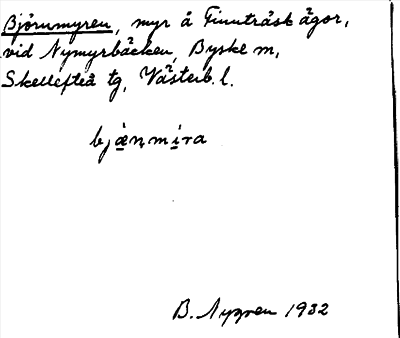 Björnmyren, myr å Finnträsk ägor,
vid Nymyrbäcken, Byske m,
Skellefteå tg, Västerb. l.
bjæ̀ṇmìra
B. Nygren 1932